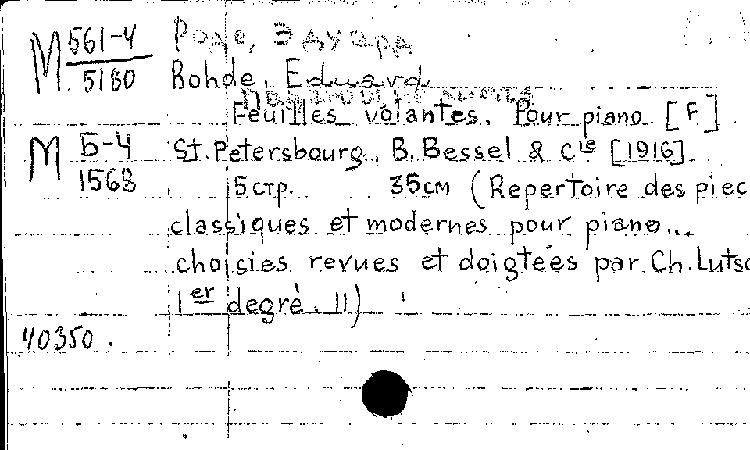 M 561-4 Роде, Эдуард
5180 Rohde, Eduard
Feuilles volantes. Pour piano [F]
M Б-4 St. Petersbourg, B. Bessel & Cie [1916]
1568 5 стр. 35см (Repertoire des piec
classiques et modernes pour piano...
choisies revues et doigtées par Ch. Lutsc
1er degrè. 11)
40350.